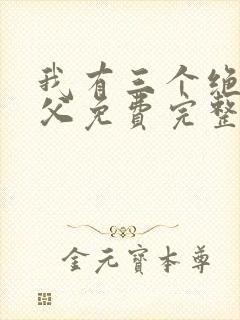 我有三个绝
父免费完整
金元宝本尊